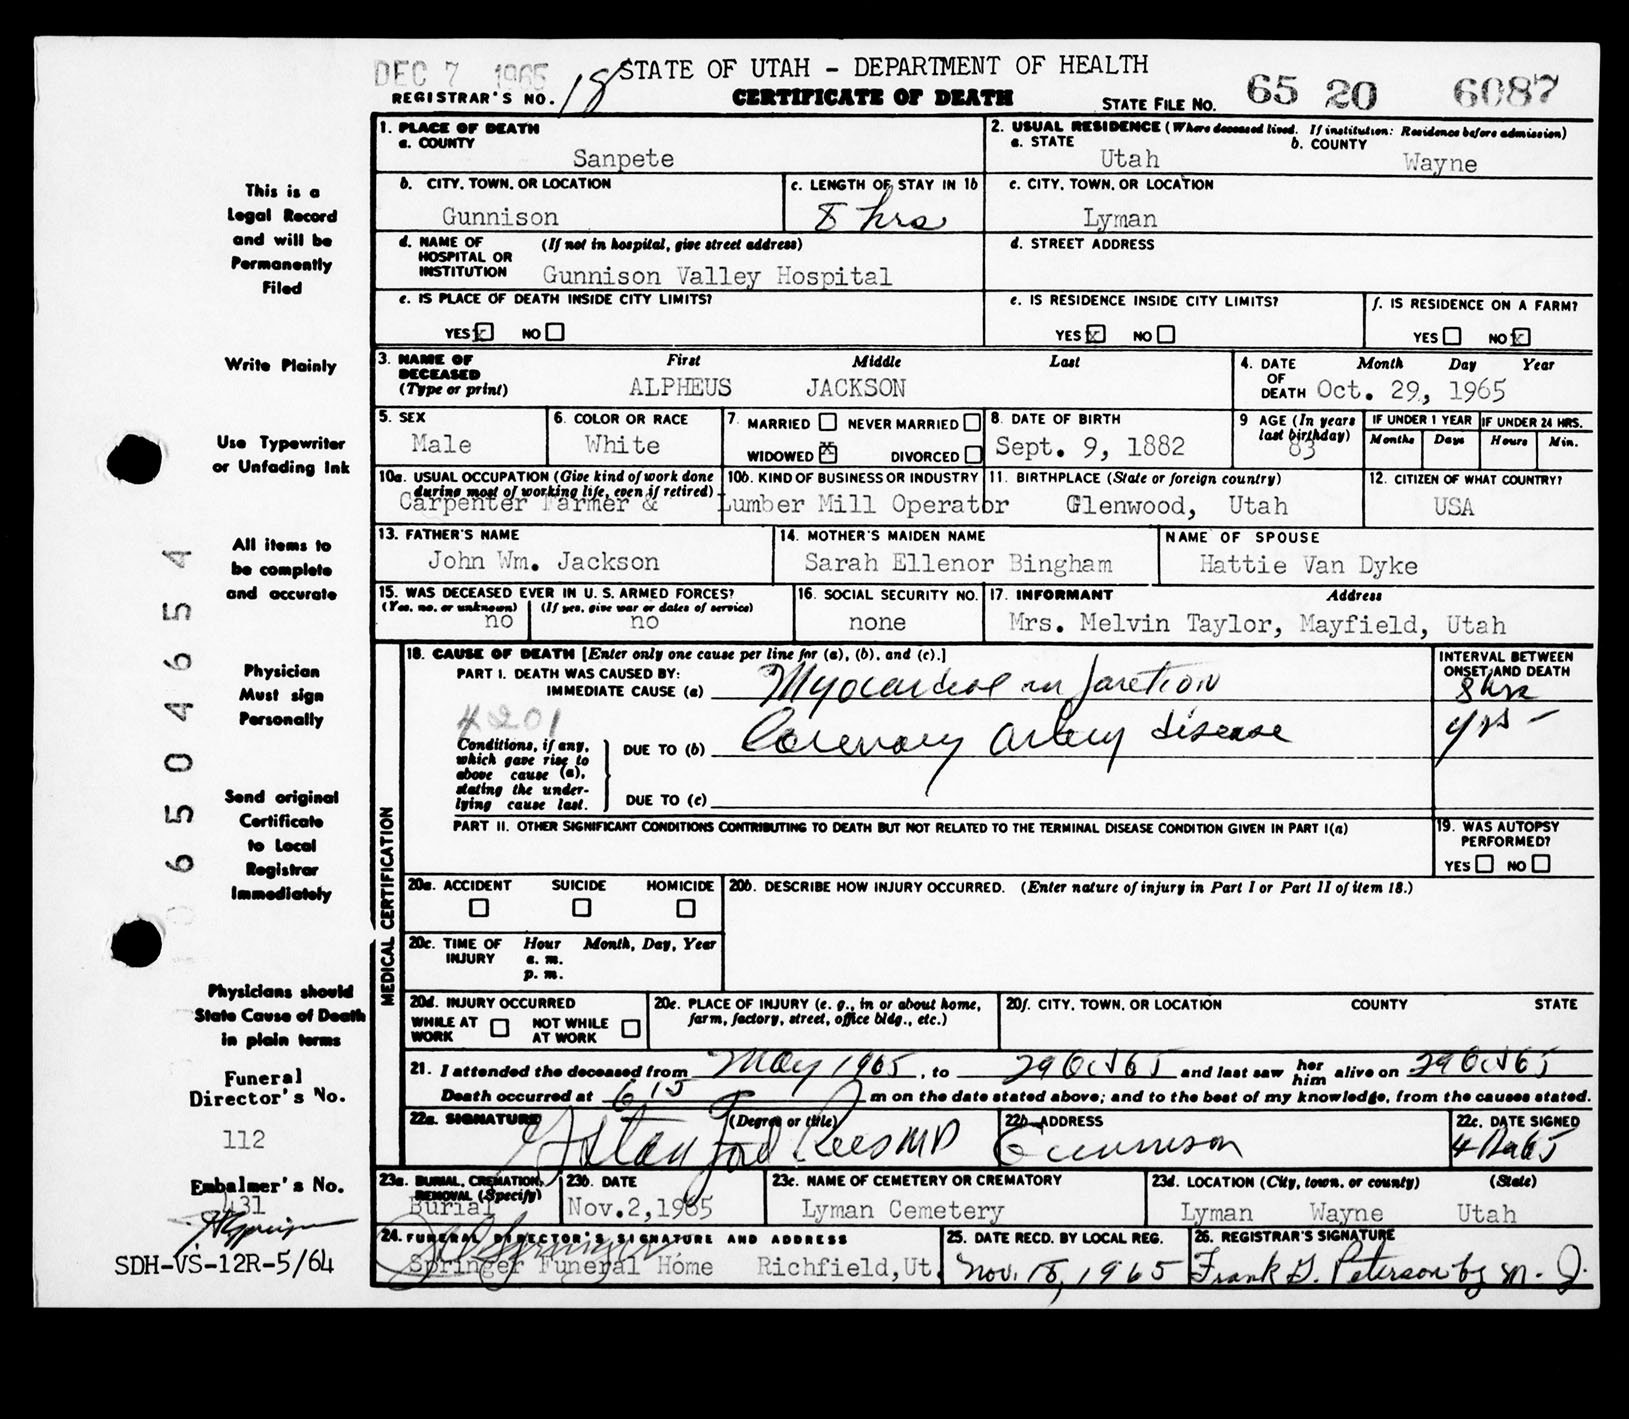 DEC 7 1965
STATE OF UTAH - DEPARTMENT OF HEALTH
REGISTRAR'S NO. 18
CERTIFICATE OF DEATH
STATE FILE NO. 65 20 6087
This is a
Legal Record
and will be
Permanently
Filed
Write Plainly
Use Typewriter
or Unfading Ink
All items to
be complete
and accurate
Physician
Must sign
Personally
Send original
Certificate
to Local
Registrar
Immediately
Physicians should
State Cause of Death
in plain terms
Funeral
Director's No.
112
Embalmer's No.
431
SDH-VS-12R-5/64
65046554
1. PLACE OF DEATH
a. COUNTY
Sanpete
2. USUAL RESIDENCE (Where deceased lived. If institution: Residence before admission)
a. STATE Utah b. COUNTY Wayne
b. CITY, TOWN, OR LOCATION
Gunnison
c. LENGTH OF STAY IN 1b
8 hrs
c. CITY, TOWN, OR LOCATION
Lyman
d. NAME OF HOSPITAL OR INSTITUTION (If not in hospital, give street address)
Gunnison Valley Hospital
d. STREET ADDRESS
e. IS PLACE OF DEATH INSIDE CITY LIMITS?
YES x NO
e. IS RESIDENCE INSIDE CITY LIMITS?
YES x NO
f. IS RESIDENCE ON A FARM?
YES NO x
3. NAME OF DECEASED (Type or print) First Middle Last
ALPHEUS JACKSON
4. DATE OF DEATH Month Day Year
Oct. 29, 1965
5. SEX
Male
6. COLOR OR RACE
White
7. MARRIED NEVER MARRIED
WIDOWED x DIVORCED
8. DATE OF BIRTH
Sept. 9, 1882
9 AGE (In years last birthday)
83
IF UNDER 1 YEAR
Months Days
IF UNDER 24 HRS.
Hours Min.
10a. USUAL OCCUPATION (Give kind of work done during most of working life, even if retired)
Carpenter Farmer &
10b. KIND OF BUSINESS OR INDUSTRY
Lumber Mill Operator
11. BIRTHPLACE (State or foreign country)
Glenwood, Utah
12. CITIZEN OF WHAT COUNTRY?
USA
13. FATHER'S NAME
John Wm. Jackson
14. MOTHER'S MAIDEN NAME
Sarah Ellenor Bingham
NAME OF SPOUSE
Hattie Van Dyke
15. WAS DECEASED EVER IN U. S. ARMED FORCES?
(Yes, no, or unknown) (If yes, give war or dates of service)
no no
16. SOCIAL SECURITY NO.
none
17. INFORMANT Address
Mrs. Melvin Taylor, Mayfield, Utah
MEDICAL CERTIFICATION
18. CAUSE OF DEATH [Enter only one cause per line for (a), (b), and (c).]
PART I. DEATH WAS CAUSED BY:
IMMEDIATE CAUSE (a) Myocardial infarction
INTERVAL BETWEEN
ONSET AND DEATH
8 hrs
4201
Conditions, if any,
which gave rise to
above cause (a),
stating the under-
lying cause last.
DUE TO (b) Coronary artery disease
yrs -
DUE TO (c)
PART II. OTHER SIGNIFICANT CONDITIONS CONTRIBUTING TO DEATH BUT NOT RELATED TO THE TERMINAL DISEASE CONDITION GIVEN IN PART I(a)
19. WAS AUTOPSY
PERFORMED?
YES NO
20a. ACCIDENT SUICIDE HOMICIDE
20b. DESCRIBE HOW INJURY OCCURRED. (Enter nature of injury in Part I or Part II of item 18.)
20c. TIME OF INJURY Hour Month, Day, Year
a. m.
p. m.
20d. INJURY OCCURRED
WHILE AT WORK NOT WHILE AT WORK
20e. PLACE OF INJURY (e. g., in or about home,
farm, factory, street, office bldg., etc.)
20f. CITY, TOWN, OR LOCATION COUNTY STATE
21. I attended the deceased from May 1965, to 29 Oct 65 and last saw her him alive on 29 Oct 65
Death occurred at 6 15 m on the date stated above; and to the best of my knowledge, from the causes stated.
22a. SIGNATURE (Degree or title)
Stanford Rees MD
22b. ADDRESS
Gunnison
22c. DATE SIGNED
23a. BURIAL, CREMATION, REMOVAL (Specify)
Burial
23b. DATE
Nov.2,1965
23c. NAME OF CEMETERY OR CREMATORY
Lyman Cemetery
23d. LOCATION (City, town, or county) (State)
Lyman Wayne Utah
24. FUNERAL DIRECTOR'S SIGNATURE AND ADDRESS
Springer Funeral Home Richfield,Ut.
25. DATE RECD. BY LOCAL REG.
Nov. 18, 1965
26. REGISTRAR'S SIGNATURE
Frank G. Peterson by M. J.